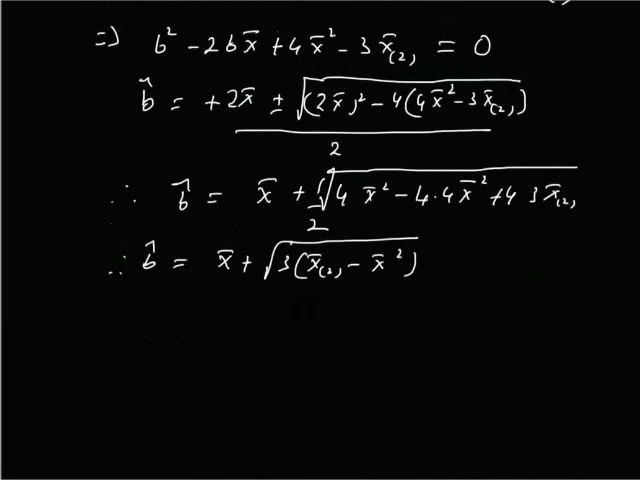 ⇒) b² - 2bx̄ + 4x̄² - 3x̄₍₂₎ = 0
b̂ = +2x̄ ± √((2x̄)² - 4(4x̄² - 3x̄₍₂₎)) / 2
∴ b̂ = x̄ + ½√(4x̄² - 4·4x̄² + 4 3x̄₍₂₎)
∴ b̂ = x̄ + √(3(x̄₍₂₎ - x̄²))